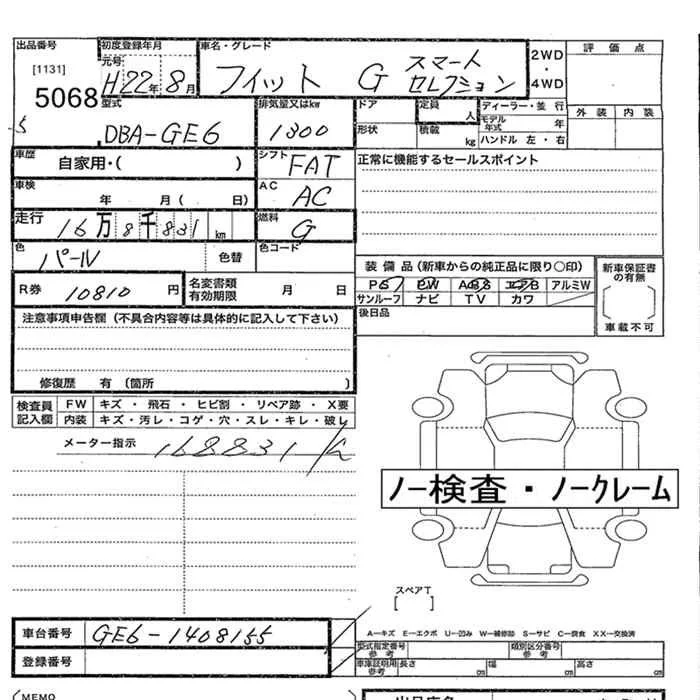 出品番号 初度登録年月 車名・グレード 2WD・4WD 評価点
[1131] 元号 H22年8月 フィット G スマートセレクション
5068 外装 内装
型式 DBA-GE6 排気量又はkw 1300 ドア 定員 人 ディーラー・並行
形状 積載 kg モデル年式 年
ハンドル 左・右
車歴 自家用・( ) シフト FAT 正常に機能するセールスポイント
車検 年 月( 日) AC AC
走行 16万8千831km 燃料 G
色 パール 色替 色コード
装備品(新車からの純正品に限り〇印) 新車保証書の有無
R券 10810円 名変書類有効期限 月 日 PS PW ABS エアB アルミW
サンルーフ ナビ TV カワ [ ]
注意事項申告欄(不具合内容等は具体的に記入して下さい) 後日品 車載不可
修復歴 有(箇所 )
検査員記入欄 FW キズ・飛石・ヒビ割・リペア跡・X要
内装 キズ・汚レ・コゲ・穴・スレ・キレ・破レ
メーター指示 168831
ノー検査・ノークレーム
スペアT
[ ]
車台番号 GE6-1408155 A―キズ E―エクボ U―凹み W―補修跡 S―サビ C―腐食 XX―交換済
型式指定番号 参考 類別区分番号 参考
登録番号 車庫証明用 参考 長さ cm 幅 cm 高さ cm
MEMO